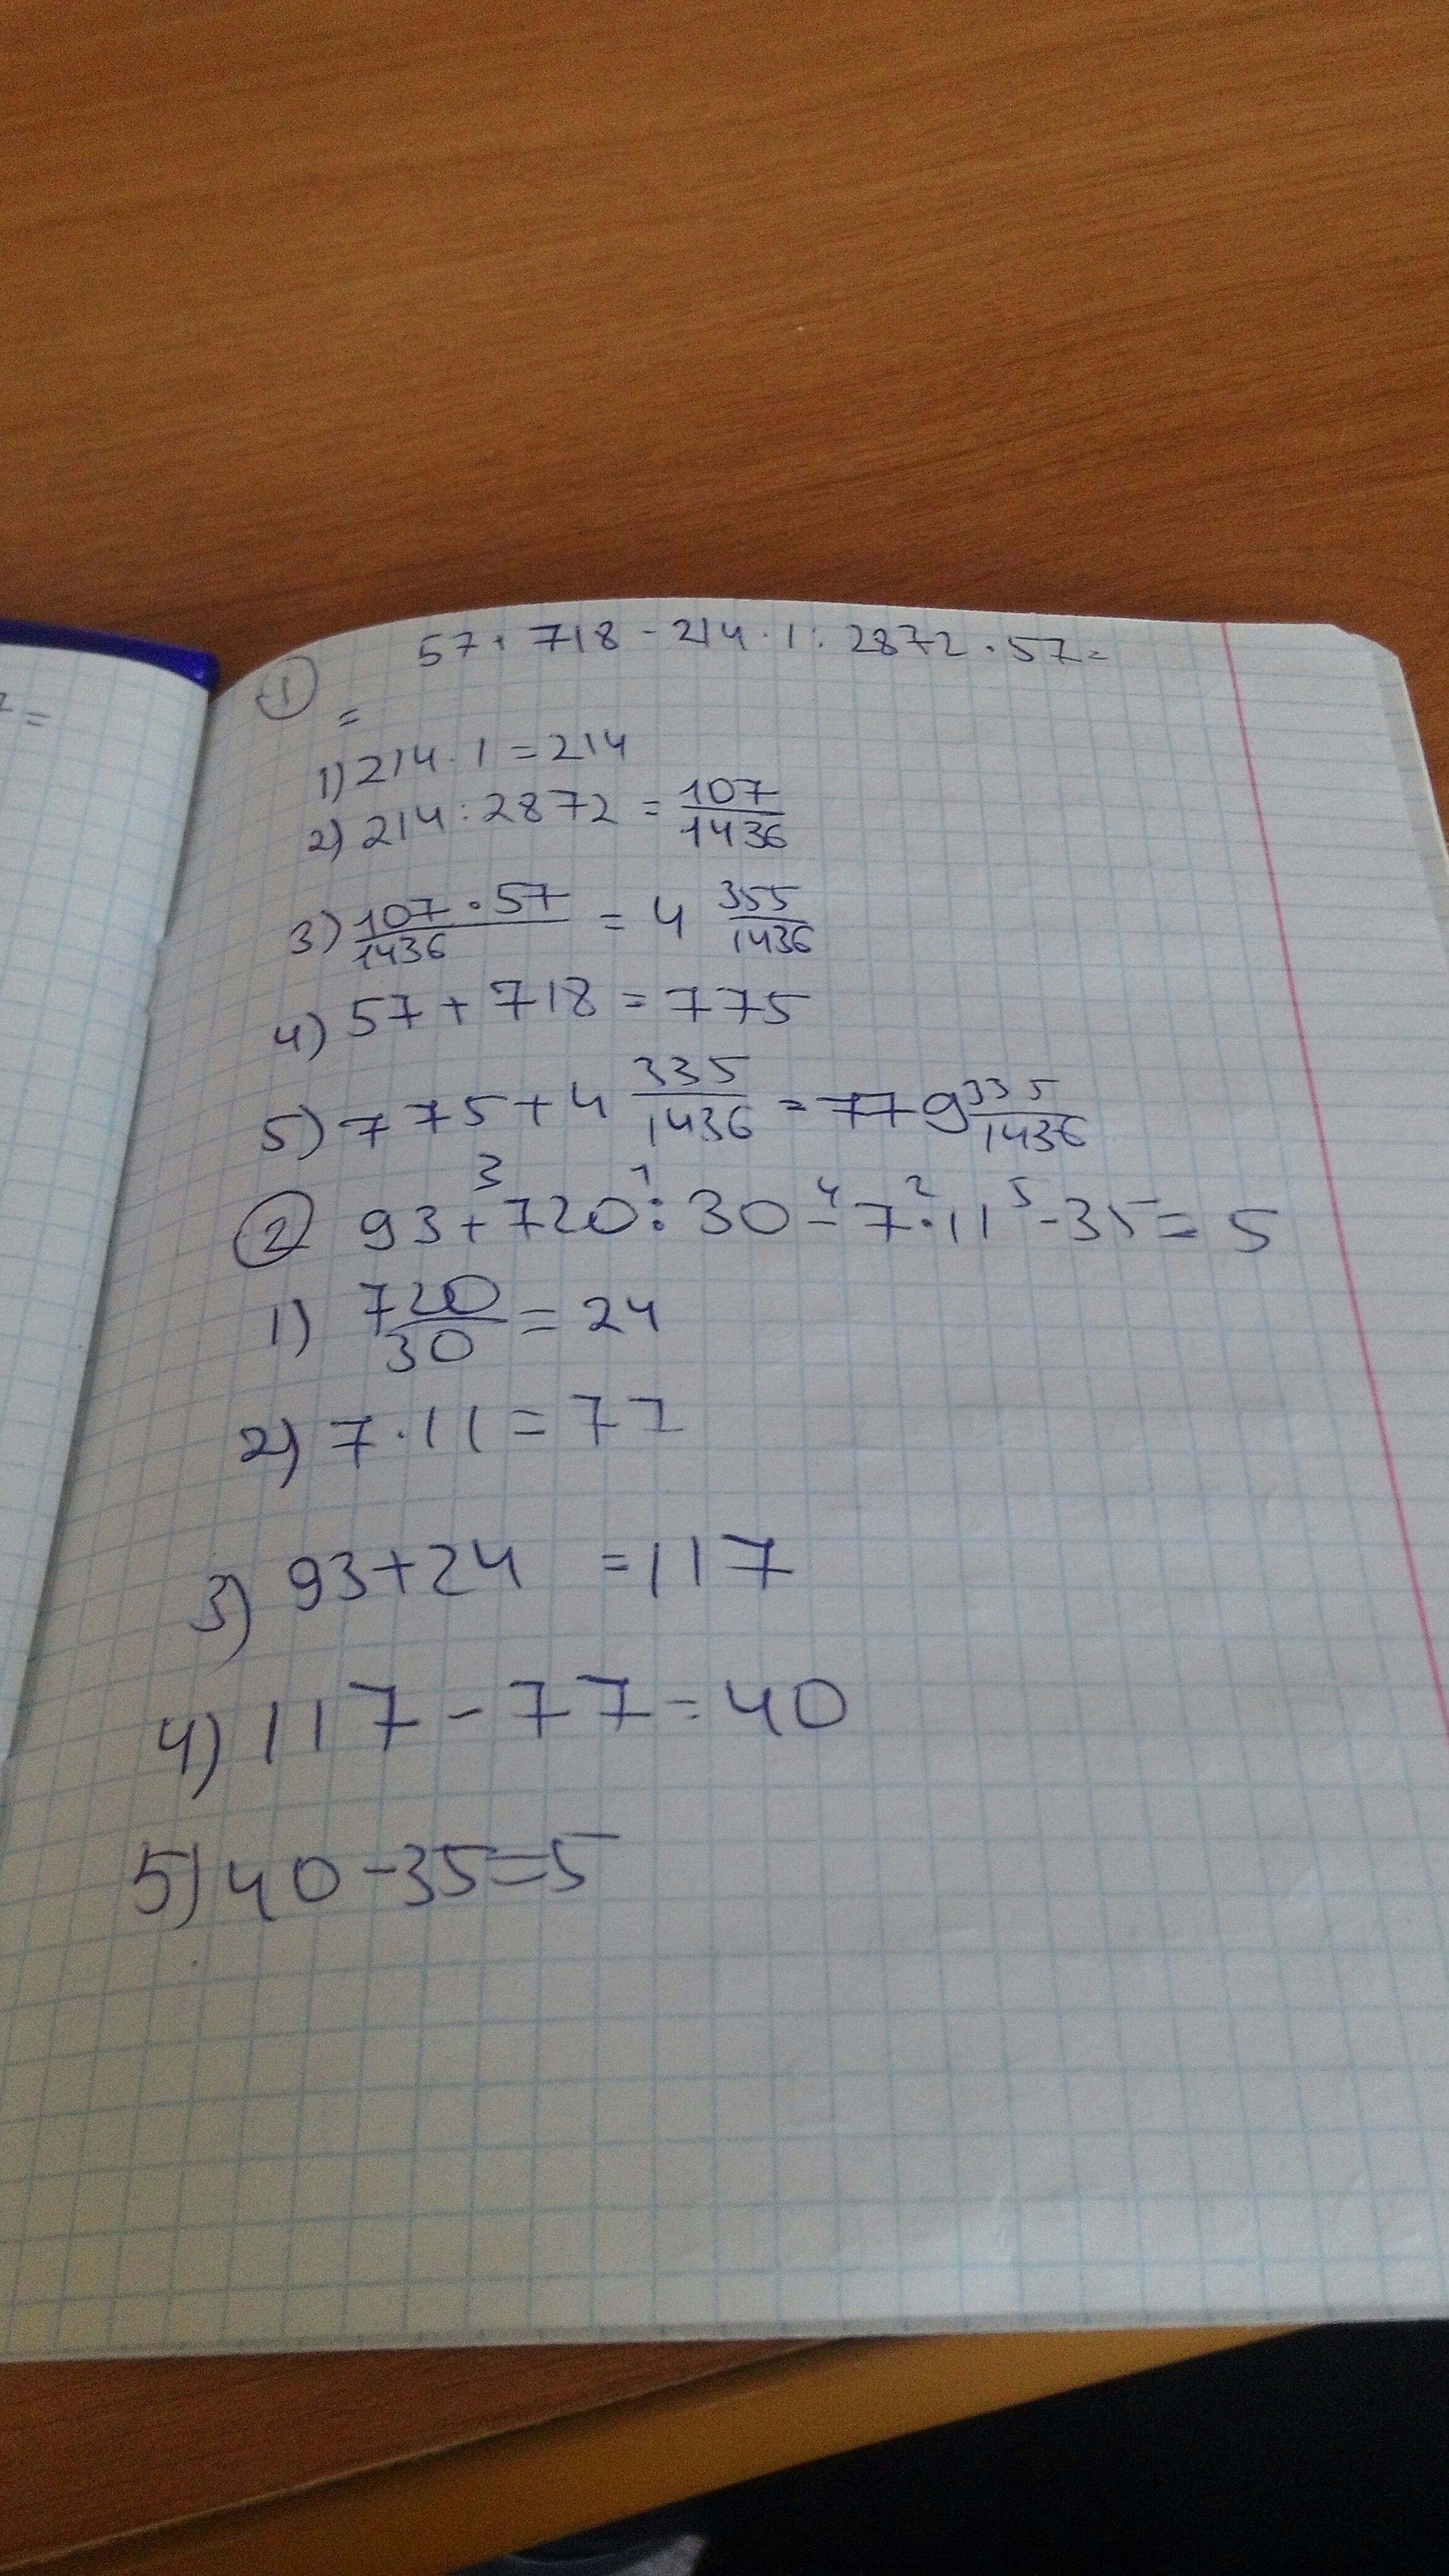 ① 57+718-214·1:2872·57=
=
1) 214·1=214
2) 214:2872=107/1436
3) 107·57/1436=4 355/1436
4) 57+718=775
5) 775+4 335/1436=779 335/1436
3 1 4 2 5
② 93+720:30-7·11-35=5
1) 720/30=24
2) 7·11=77
3) 93+24=117
4) 117-77=40
5) 40-35=5